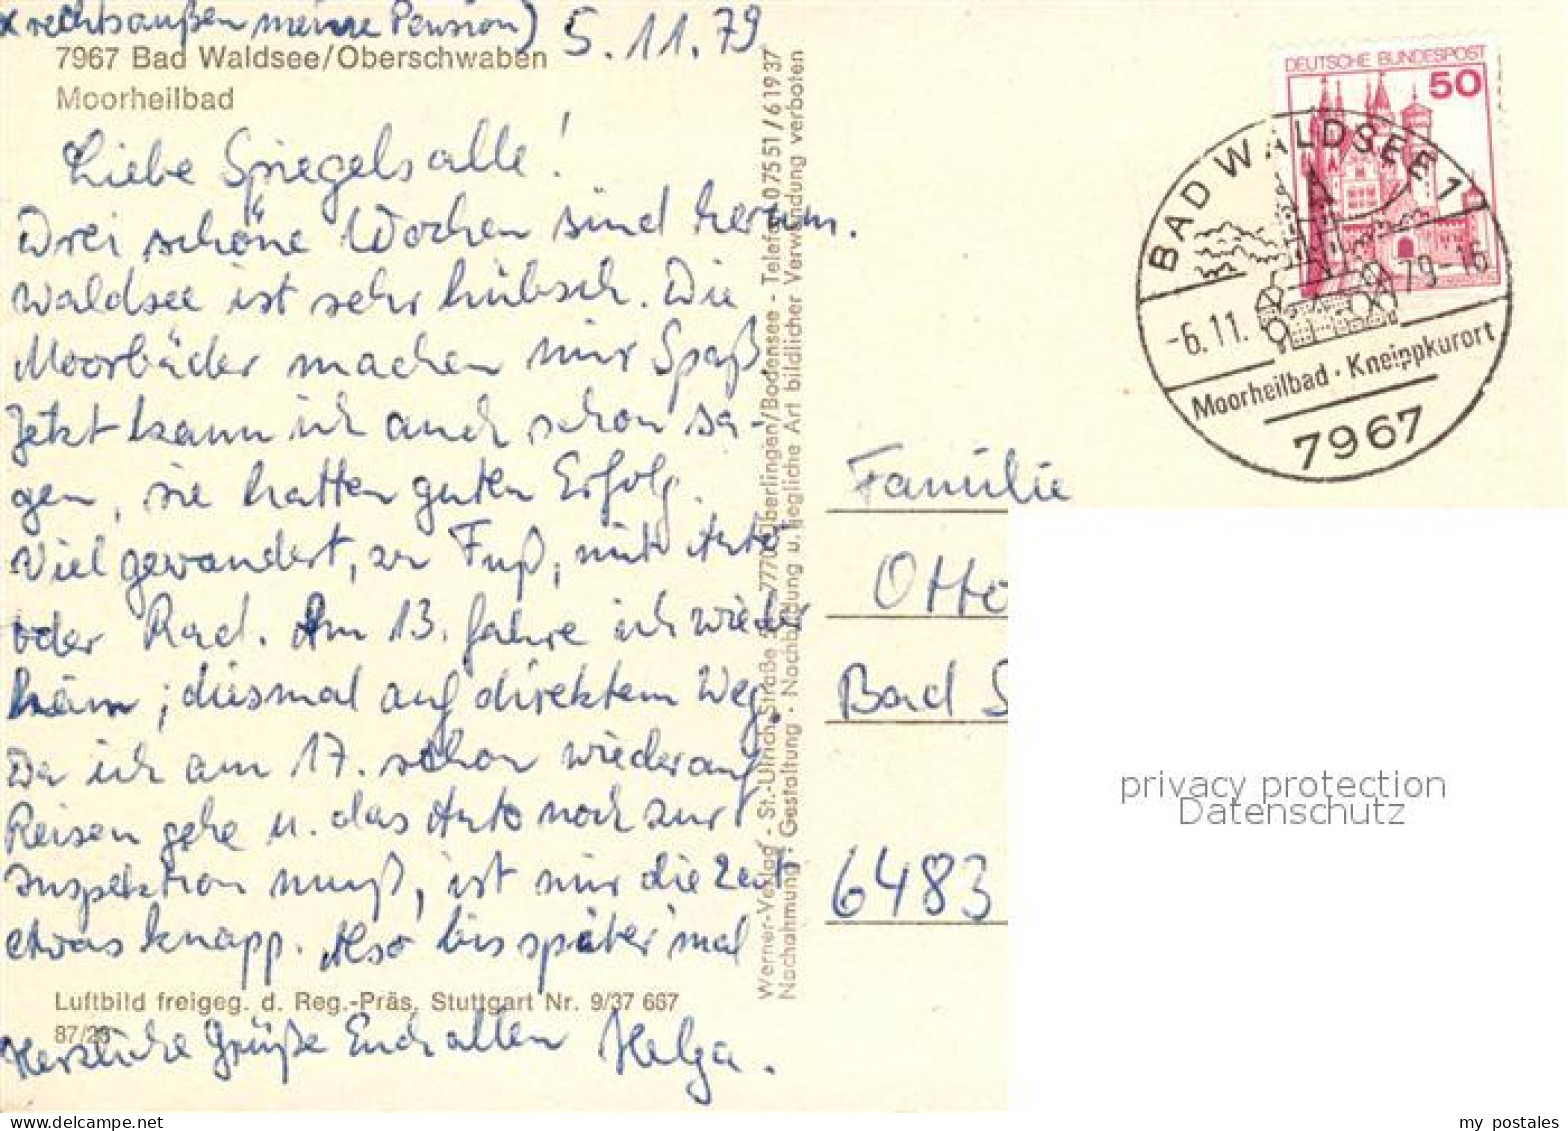 x rechtsaußen meine Pension) 5.11.79
7967 Bad Waldsee/Oberschwaben
Moorheilbad
Liebe Spiegels alle!
Drei schöne Wochen sind herum.
Waldsee ist sehr hübsch. Die
Moorbäder machen mir Spaß
Jetzt kann ich auch schon sa-
gen, sie hatten guten Erfolg.
Viel gewandert, zu Fuß, mit Auto
oder Rad. Am 13. fahre ich wieder
heim; diesmal auf direktem Weg.
Da ich am 17. schon wieder auf
Reisen gehe u. das Auto noch zur
Inspektion muß, ist mir die Zeit
etwas knapp. Also bis später mal
Luftbild freigeg. d. Reg.-Präs. Stuttgart Nr. 9/37 667
87/23
Herzliche Grüße Euch allen Helga.
Werner-Verlag · St.-Ulrich-Straße 7770 Überlingen/Bodensee - Telefon 0 75 51 / 6 19 37
Nachahmung · Gestaltung · Nachbildung u. jegliche Art bildlicher Verwendung verboten
DEUTSCHE BUNDESPOST
50
BAD WALDSEE 1
-6.11.79-16
Moorheilbad · Kneippkurort
7967
Familie
Otto
Bad S
6483
privacy protection
Datenschutz
my postales